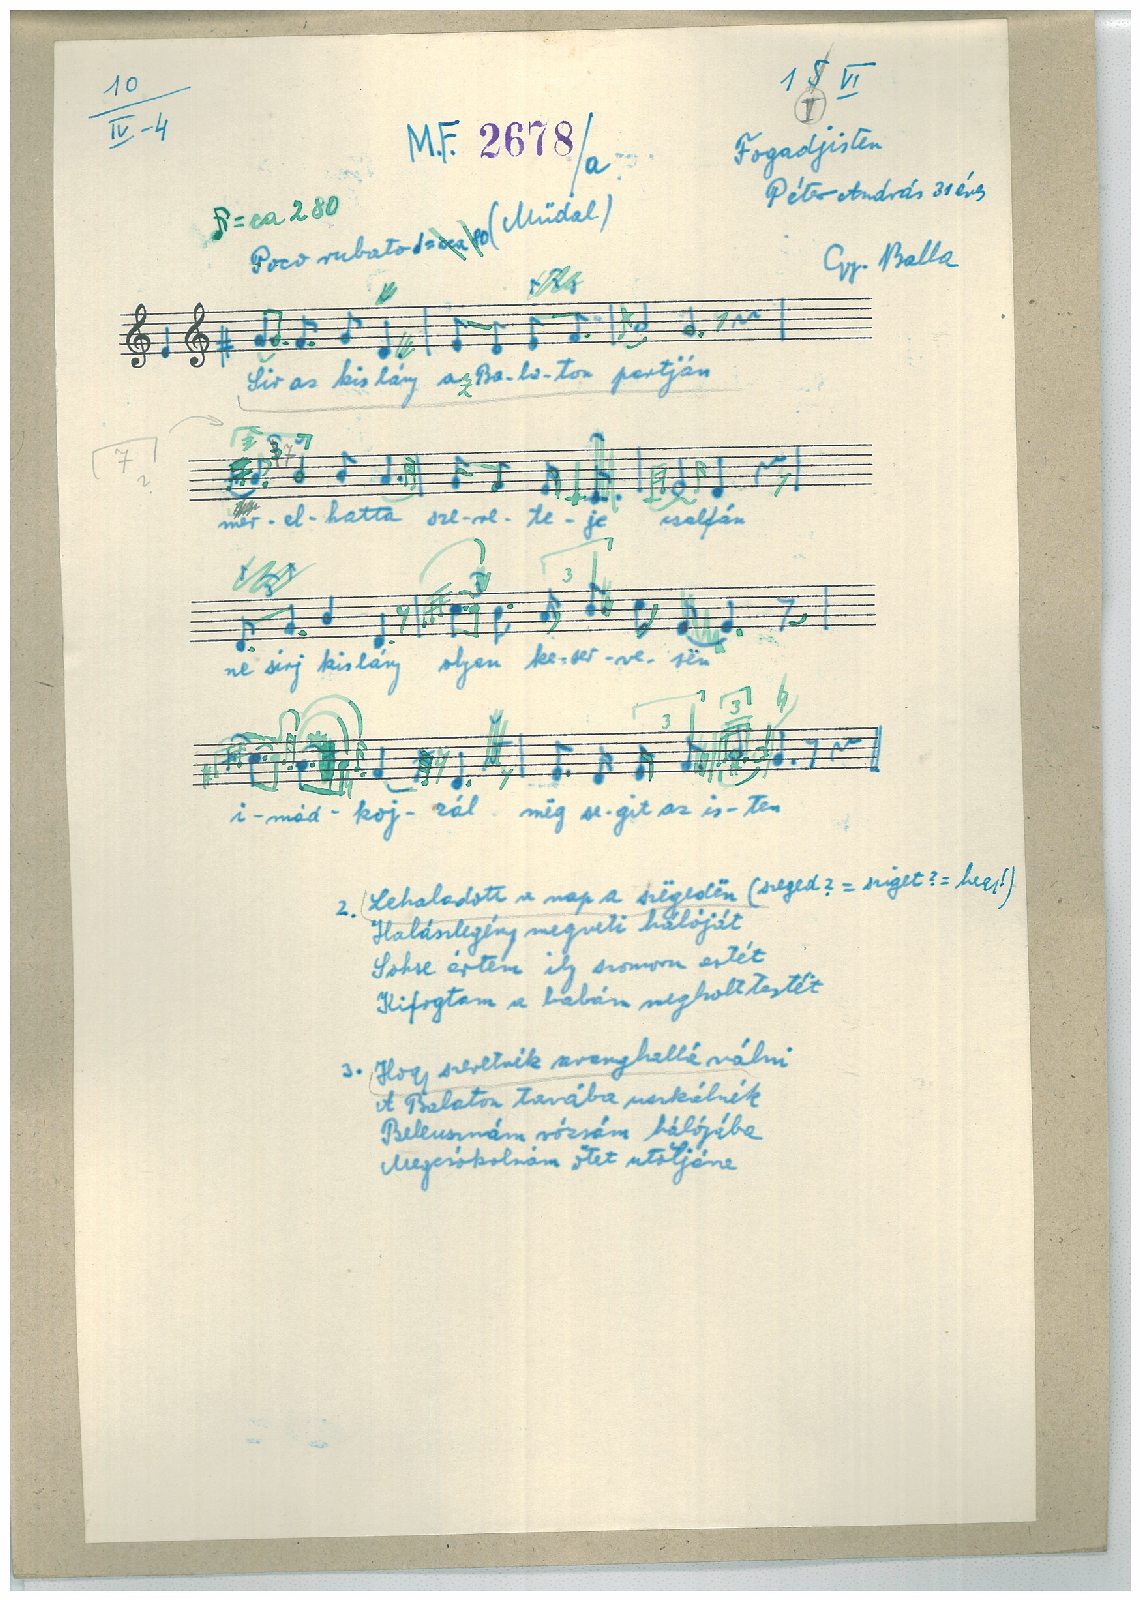 10
IV-4
1 5 VI
V
M.F. 2678/a
Fogadjisten
Péter András 31 éves
♪=ca 280
Poco rubato ♩=cca 90 (Müdal)
Gy. Balla
Sir az kislány a Ba-la-ton partján
7
3
7
mer-el-hatta sze-re-te-je csalfán
3
3
ne sirj kislány olyan ke-ser-ve-sën
3
3
i-mád-koj-zál még se-git az is-ten
2. Lehaladott a nap a szëgedën (szeged? = sziget? = hegy!)
Halászlegény megveti hálóját
Sohse értem ily szomorú estét
Kifogtam a babám megholt testét
3. Hogy szeretnék aranyhallá válni
A Balaton tavába uszkálnék
Beleusznám rózsám hálójába
Megcsókolnám őtet utoljára